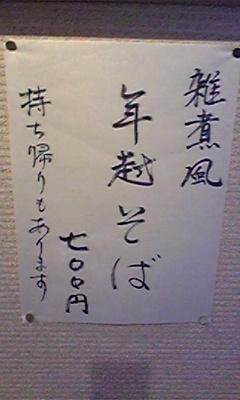 雑煮風
年越そば
七〇〇円
持ち帰りもあります